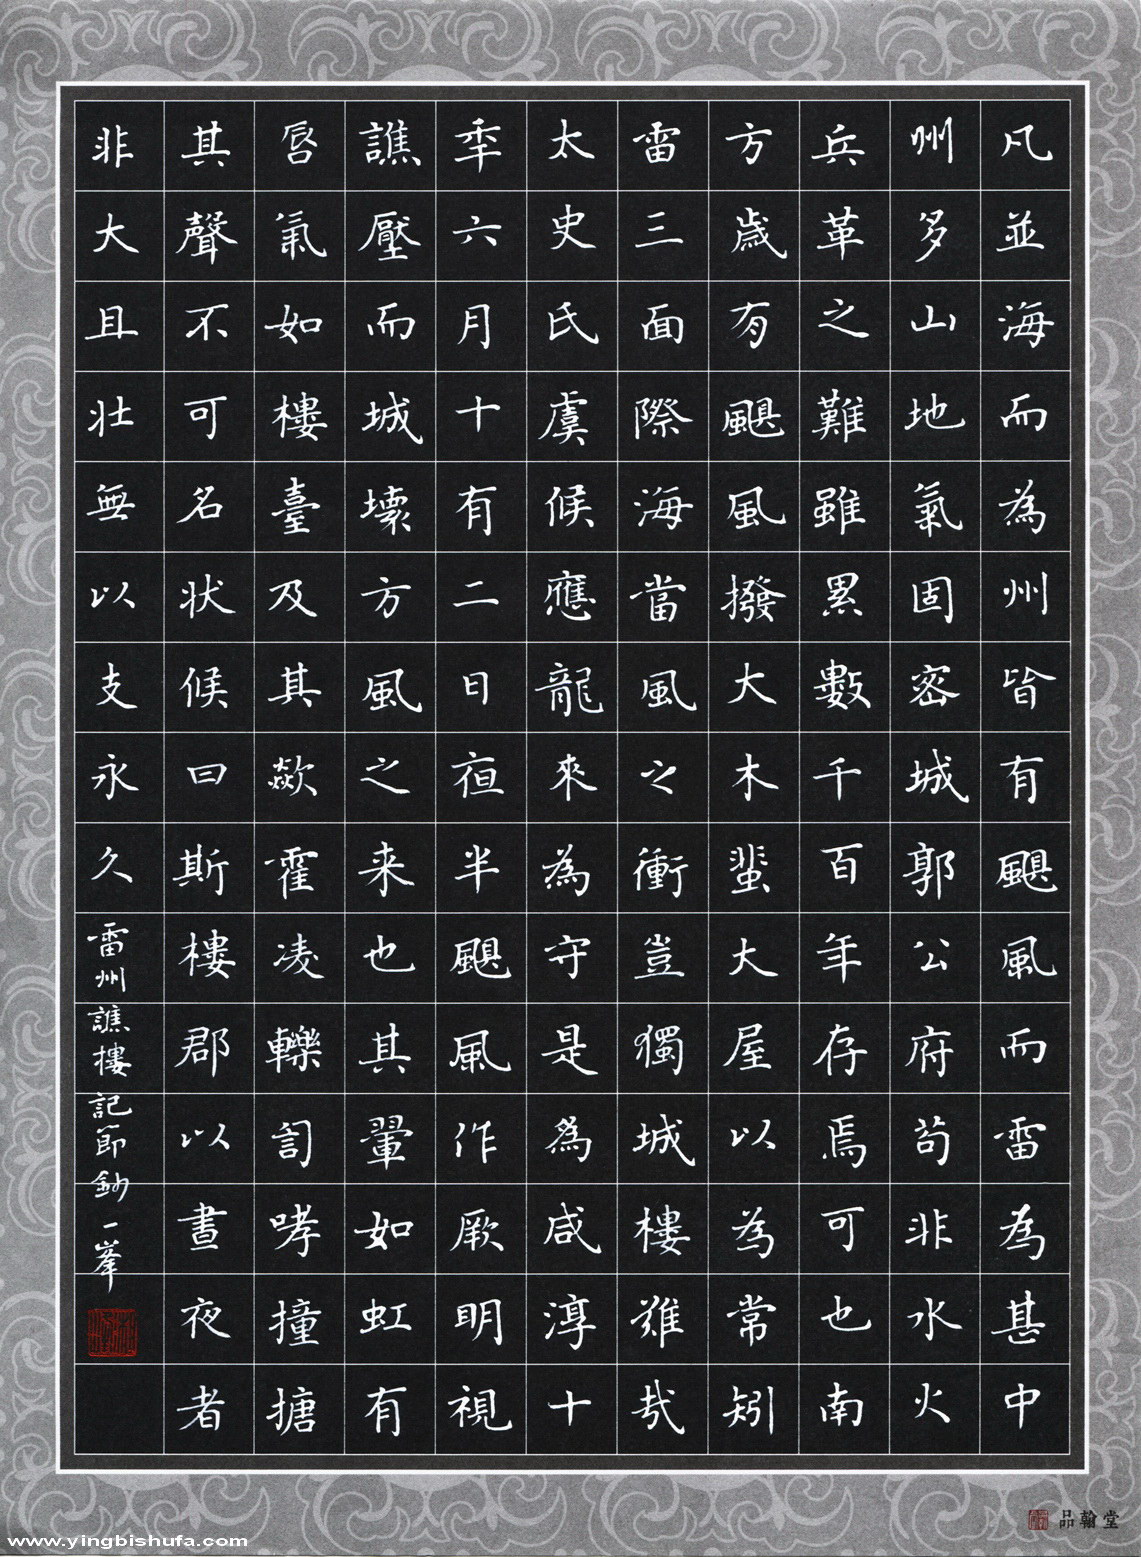 凡並海而為州皆有颶風而雷為甚中
州多山地氣固密城郭公府苟非水火
兵革之難雖累數千百年存焉可也南
方歲有颶風撥大木蜚大屋以為常矧
雷三面際海當風之衝豈獨城樓難哉
太史氏虞候應龍來為守是為咸淳十
季六月十有二日夜半颶風作厥明視
譙壓而城壞方風之来也其翬如虹有
唇氣如樓臺及其歘霍凌轢訇哮撞搪
其聲不可名状候曰斯樓郡以晝夜者
非大且壮無以支永久
雷州譙樓記節鈔一峯
品翰堂
www.yingbishufa.com